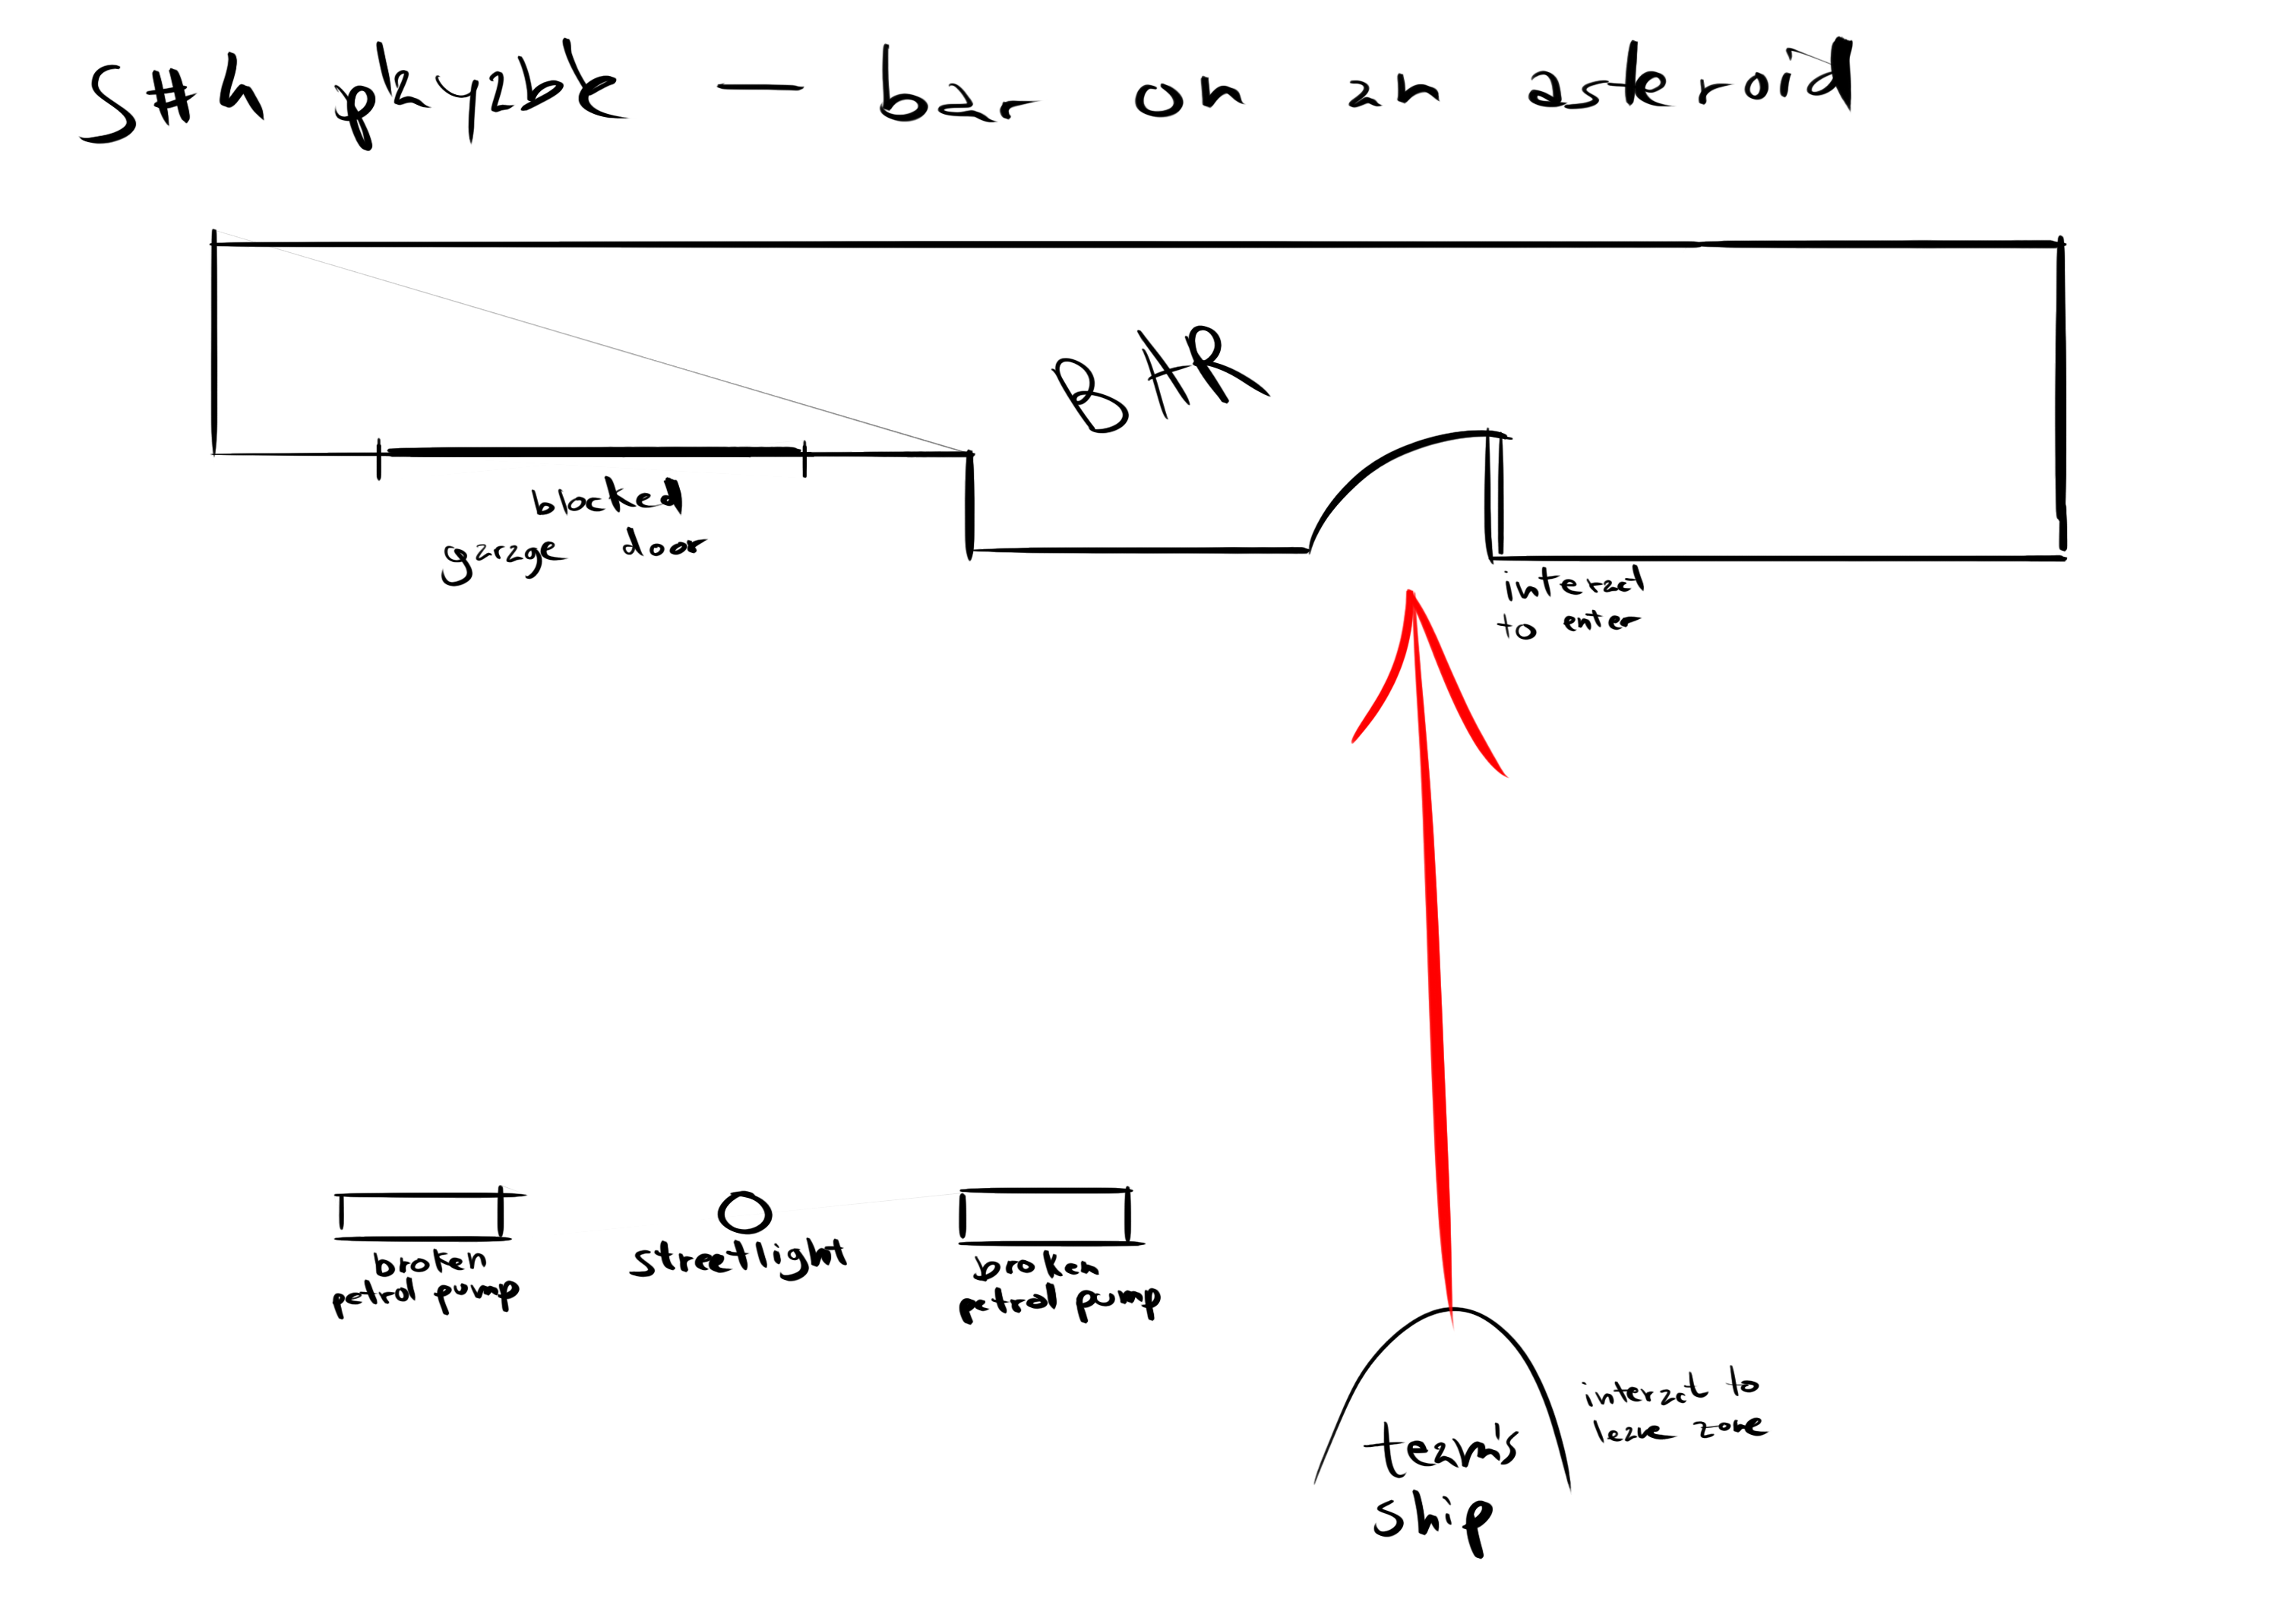 playable — bar on an asteroid
BAR
blocked
garage door
interact
to enter
broken
petrol pump
streetlight
broken
petrol pump
interact to
leave zone
team's
ship